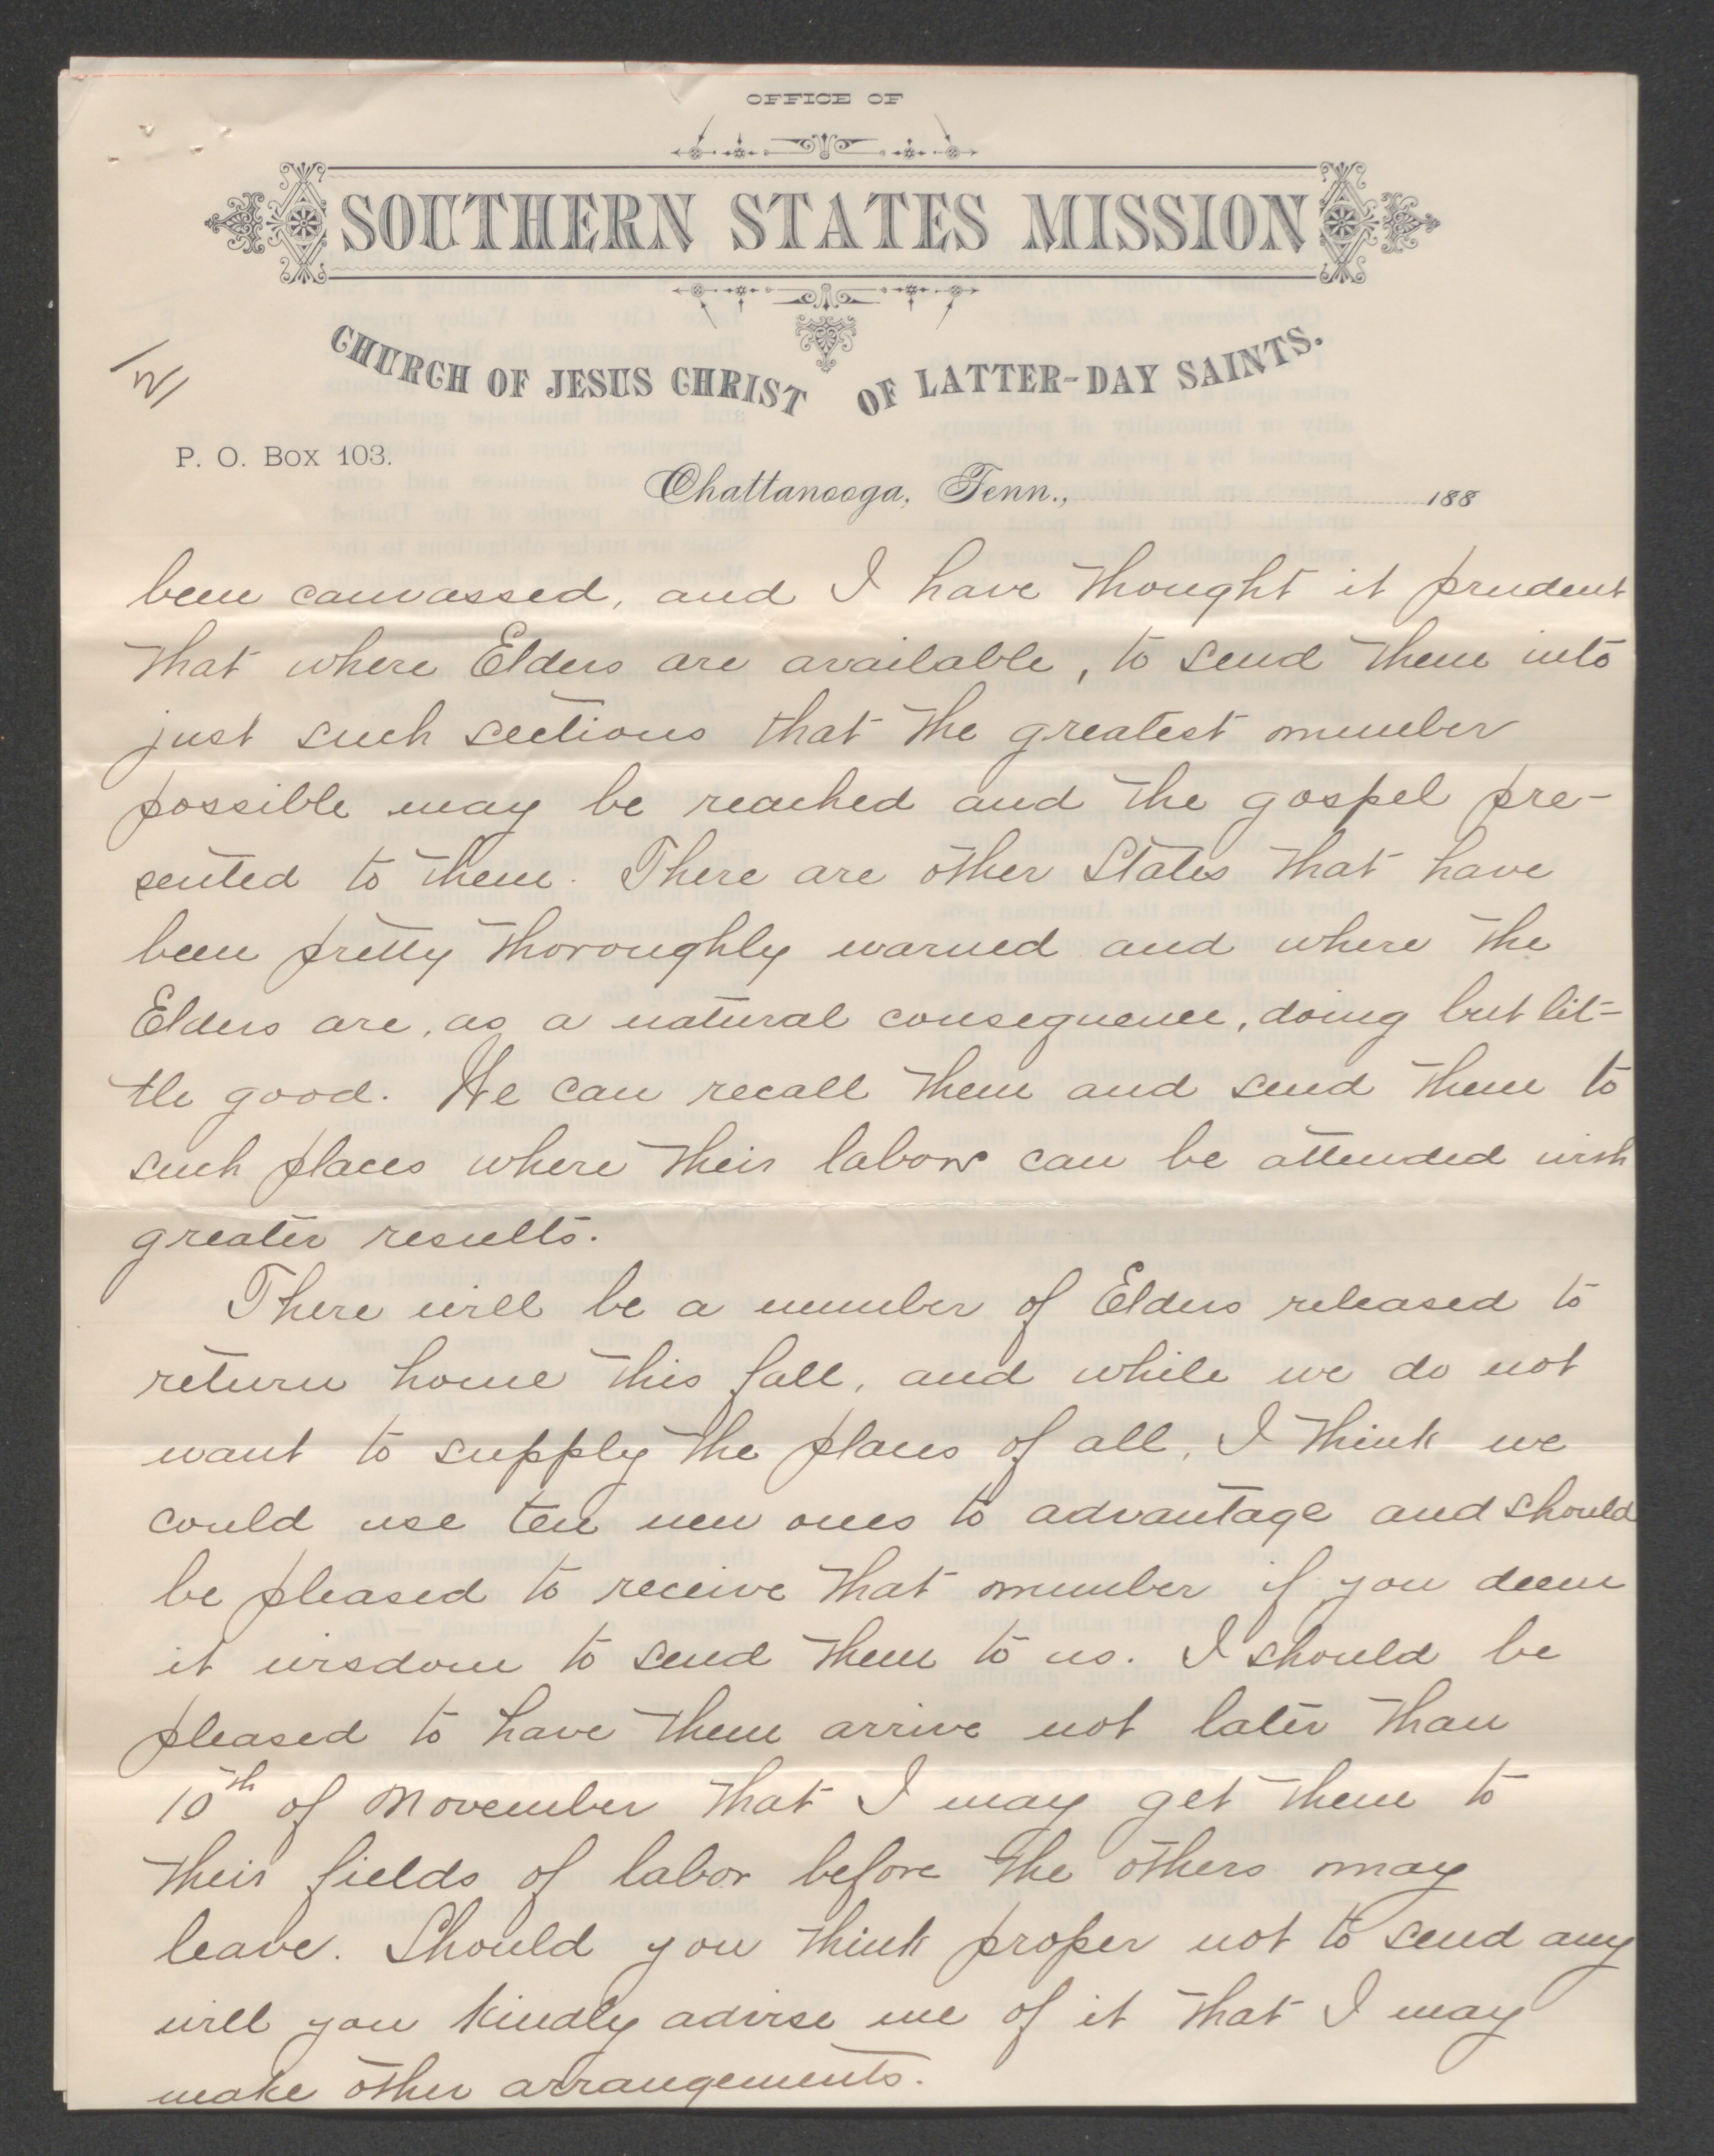 OFFICE OF
SOUTHERN STATES MISSION
CHURCH OF JESUS CHRIST OF LATTER-DAY SAINTS.
/2/
P. O. Box 103.
Chattanooga, Tenn., 188
been canvassed, and I have thought it prudent
that where Elders are available, to send them into
just such sections that the greatest number
possible may be reached and the gospel pre-
sented to them. There are other States that have
been pretty thoroughly warned and where the
Elders are, as a natural consequence, doing but lit-
tle good. We can recall them and send them to
such places where their labors can be attended with
greater results.
There will be a number of Elders released to
return home this fall, and while we do not
want to supply the places of all, I think we
could use ten new ones to advantage and should
be pleased to receive that number if you deem
it wisdom to send them to us. I should be
pleased to have them arrive not later than
10th of November that I may get them to
their fields of labor before the others may
leave. Should you think proper not to send any
will you kindly advise me of it that I may
make other arrangements.